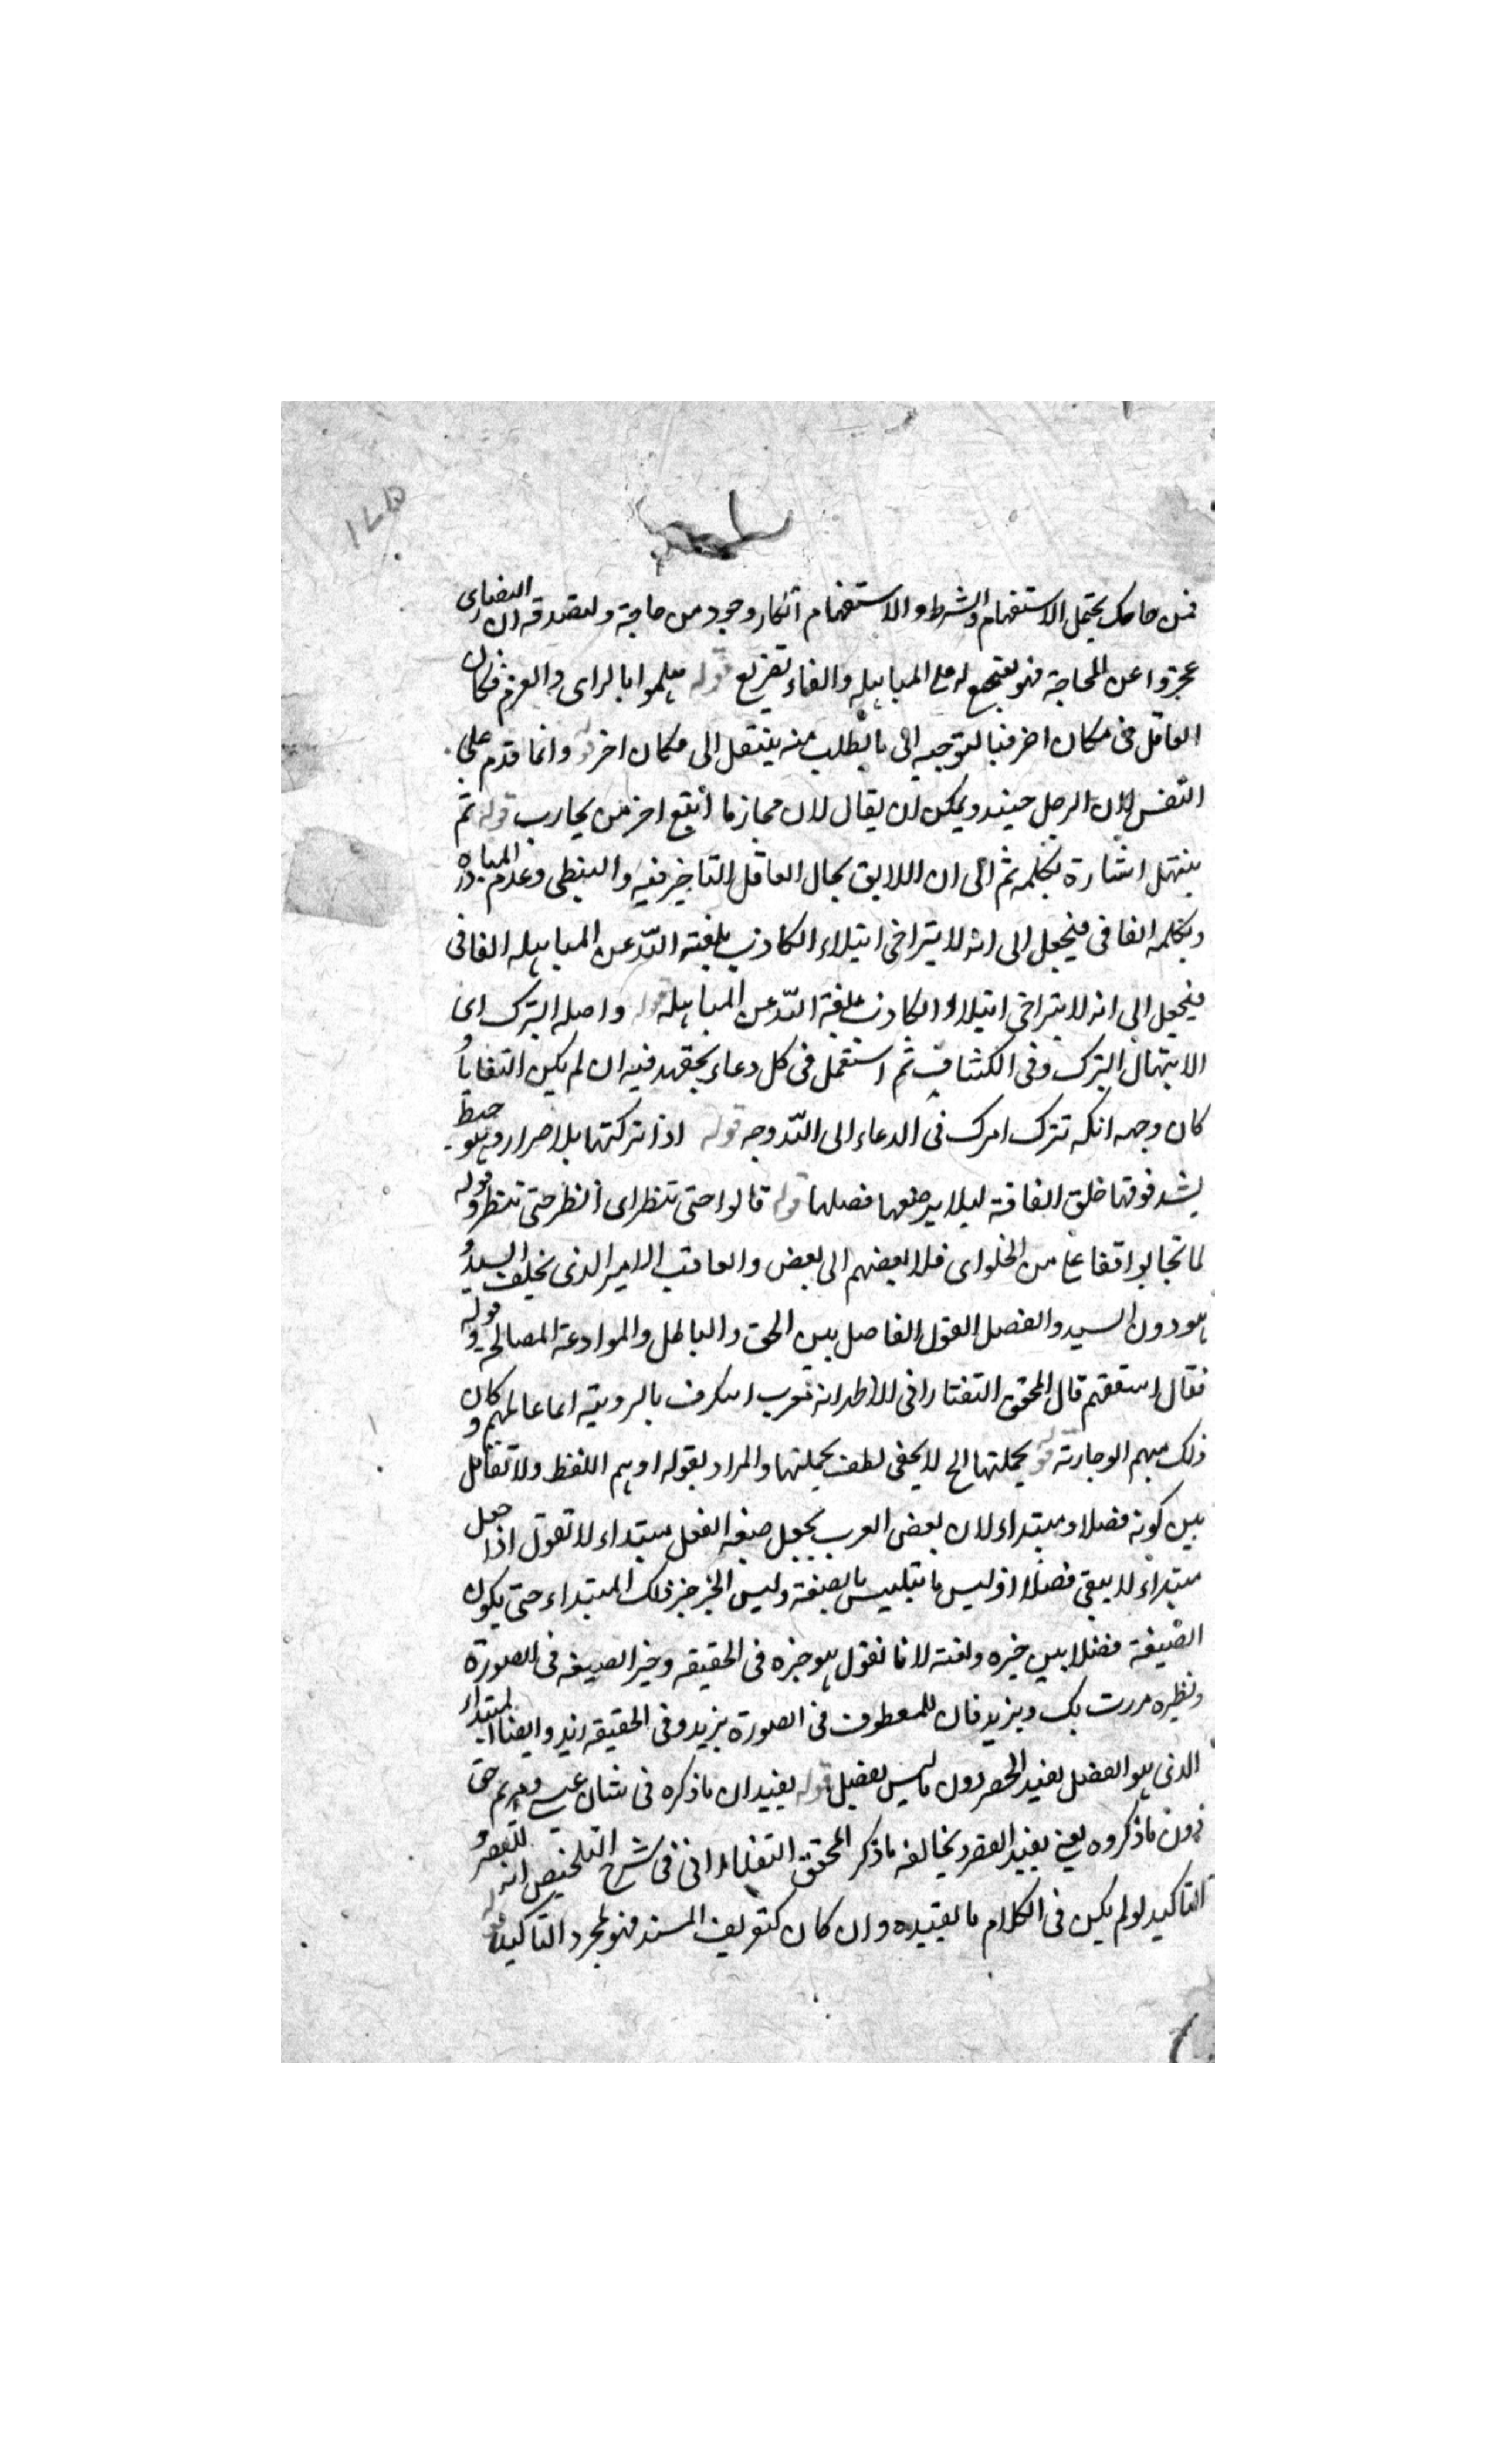 فمن حاجك يحتمل الاستفهام والشرط والاستفهام انكار وجود من حاجة ولتصدقه ان النصارى
عجزوا عن المحاجة فهو له على المباهله والفاء تفريع قوله هلموا بالراى والعزم فكان
العاقل فى مكان اخر فبالتوجيه الى ما يطلب منه ينتقل الى مكان اخر قوله وانما قدم على
النفس لان الرجل ويمكن ان يقال لان من يحارب قوله ثم
نبتهل اشارة بكلمه ثم الى ان اللايق بحال العاقل التاخير فيه والتبطى وعدم المبادره
وبكلمه الفا فى فنجعل الى انه لا يتراخى ابتلاء الكاذب بلعنة الله عن المباهله الفا فى
فنجعل الى انه لا يتراخى ابتلاء الكاذب بلعنة الله عن المباهله قوله واصله الترك اى
الابتهال الترك وفى الكشاف ثم استعمل فى كل دعاء يجتهد فيه ان لم يكن التعانا و
كان وجهه انكه تترك امرك فى الدعاء الى الله وجه قوله اذا تركتها بلا صرار وهو خيط
يشد فوقها خلق الناقة ليلا يرضعها فصلها قوله قالوا حتى ننظر اى انظر حتى ننظر قوله
لما تخالوا من الخلو اى خلا بعضهم الى بعض والعاقب الامير الذى يخلف السيد و
هو دون السيد والفصل القول الفاصل بين الحق والباطل والموادعة المصالحة قوله
فقال اسقفهم قال المحقق التفتازانى الاظهر انه معرب اسكرف بالرومية اما عالمهم وكان
ذلك قوله بجملتها الخ لا يخفى لطف بجملتها والمراد بقوله او هم اللفظ ولا تقابل
بين كونه فصلا ومبتداء لان بعض العرب يجعل صيغه الفصل مبتداء لا تقول اذا جعل
مبتداء لا يبقى فصلا اذ ليس ما يتلبس بالصيغة وليس الخبر خبر ذلك المبتداء حتى يكون
الصيغة فصلا بين خبره ونعته لانا نقول هو خبره فى الحقيقه وخبر الصيغه فى الصورة
ونظيره مررت بك وبزيد فان المعطوف فى الصورة بزيد وفى الحقيقه زيد وايضا المبتداء
الذى هو الفصل يفيد الحصر دون ما ليس بفصل قوله يفيد ان ما ذكره فى شان عيسى ومريم حق
دون ما ذكروه يعنى يفيد القصر ويخالفه ما ذكر المحقق التفتازانى فى شرح التلخيص انه للقصر و
التاكيد لو لم يكن فى الكلام ما يفيده وان كان كتعريف المسند فهو لمجرد التاكيد قوله